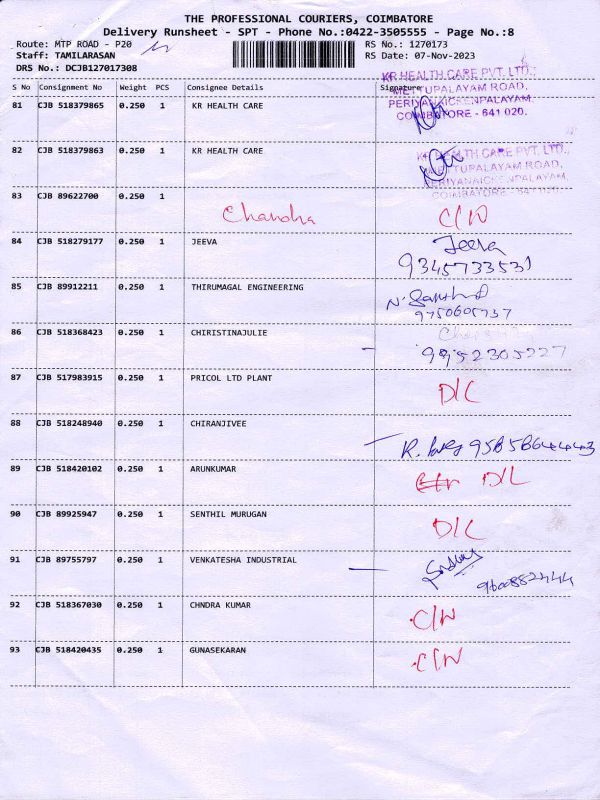 THE PROFESSIONAL COURIERS, COIMBATORE
Delivery Runsheet - SPT - Phone No.:0422-3505555 - Page No.:8
Route: MTP ROAD - P20 RS No.: 1270173
Staff: TAMILARASAN RS Date: 07-Nov-2023
DRS No.: DCJB127017308
S No Consignment No Weight PCS Consignee Details Signature
KR HEALTH CARE PVT. LTD.,
METTUPALAYAM ROAD,
PERIYANAICKENPALAYAM,
COIMBATORE - 641 020.
81 CJB 518379865 0.250 1 KR HEALTH CARE
82 CJB 518379863 0.250 1 KR HEALTH CARE
KR HEALTH CARE PVT. LTD.,
METTUPALAYAM ROAD,
PERIYANAICKENPALAYAM,
COIMBATORE - 641 020.
83 CJB 89622700 0.250 1
Chandra
84 CJB 518279177 0.250 1 JEEVA Jeeva
9345733531
85 CJB 89912211 0.250 1 THIRUMAGAL ENGINEERING
9750605737
86 CJB 518368423 0.250 1 CHIRISTINAJULIE
9952305227
87 CJB 517983915 0.250 1 PRICOL LTD PLANT D/L
88 CJB 518248940 0.250 1 CHIRANJIVEE
89 CJB 518420102 0.250 1 ARUNKUMAR D/L
90 CJB 89925947 0.250 1 SENTHIL MURUGAN D/L
91 CJB 89755797 0.250 1 VENKATESHA INDUSTRIAL
92 CJB 518367030 0.250 1 CHNDRA KUMAR C/N
93 CJB 518420435 0.250 1 GUNASEKARAN C/N